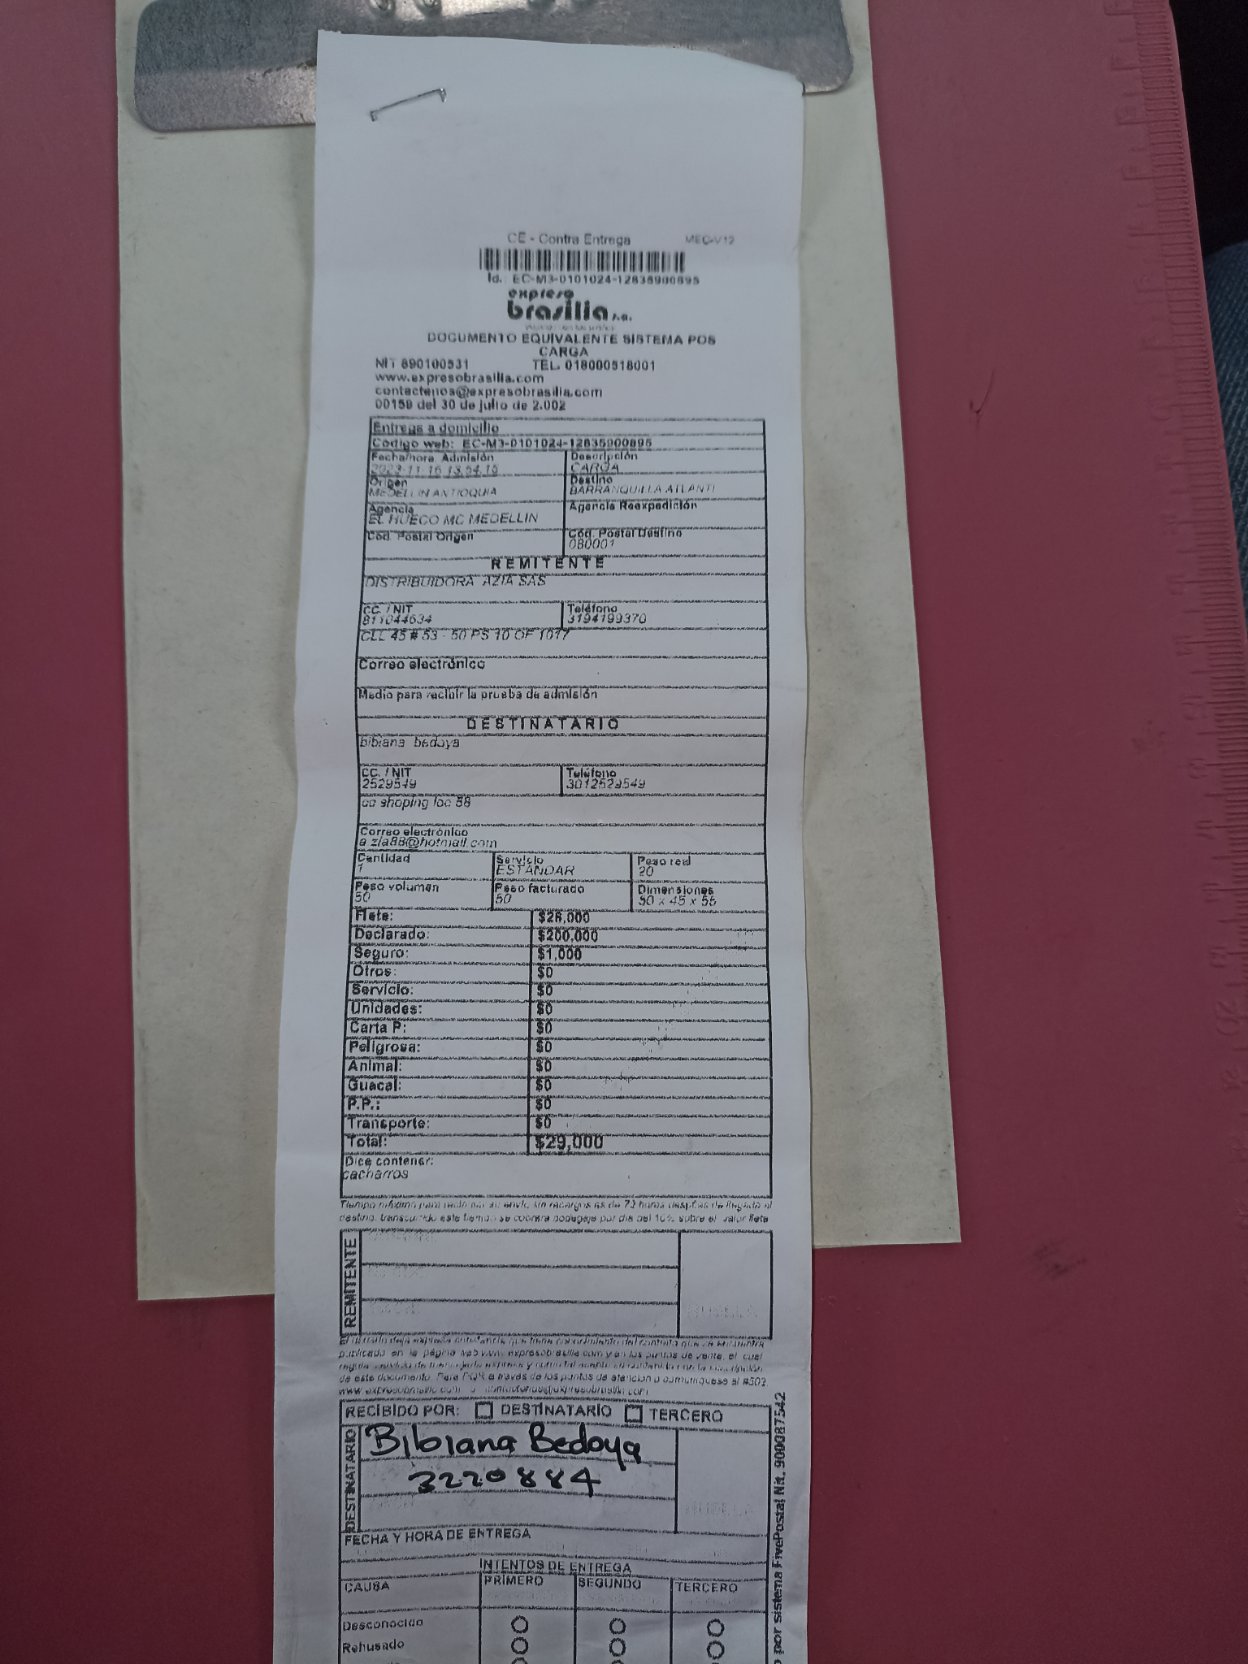 CE - Contra Entrega MEC-V12
Id.: EC-M3-0101024-12835900895
expreso
brasilia s.a.
DOCUMENTO EQUIVALENTE SISTEMA POS
CARGA
NIT 890100531 TEL. 018000518001
www.expresobrasilia.com
contactenos@expresobrasilia.com
00159 del 30 de julio de 2.002
Entrega a domicilio
Código web: EC-M3-0101024-12835900895
Fecha/hora Admisión Descripción
CARGA
Origen Destino
MEDELLIN ANTIOQUIA BARRANQUILLA ATLANTI
Agencia Agencia Reexpedición
EL HUECO MC MEDELLIN
Cód. Postal Origen Cód. Postal Destino
080001
REMITENTE
DISTRIBUIDORA AZIA SAS
CC. / NIT Teléfono
811044634 3194199370
CLL 45 # 53 - 50 PS 10 OF 1017
Correo electrónico
Medio para recibir la prueba de admisión
DESTINATARIO
bibiana bedoya
CC. / NIT Teléfono
2529549 3012529549
cc shoping loc 88
Correo electrónico
a zia88@hotmail.com
Cantidad Servicio Peso real
1 ESTANDAR 20
Peso volumen Peso facturado Dimensiones
50 50 50 x 45 x 55
Flete: $28,000
Declarado: $200,000
Seguro: $1,000
Otros: $0
Servicio: $0
Unidades: $0
Carta P: $0
Peligrosa: $0
Animal: $0
Guacal: $0
P.P.: $0
Transporte: $0
Total: $29,000
Dice contener:
cacharros
Tiempo máximo para reclamar su envío, sin recargos es de 72 horas después de llegada al
destino, transcurrido este tiempo se cobrará bodegaje por día del 10% sobre el valor flete
REMITENTE
publicado en la página web www.expresobrasilia.com y en los puntos de venta, el cual
de este documento. Para PQR a través de los puntos de atención o comuníquese al #502
RECIBIDO POR: DESTINATARIO TERCERO
DESTINATARIO
Bibiana Bedoya
3220884
FECHA Y HORA DE ENTREGA
INTENTOS DE ENTREGA
CAUSA PRIMERO SEGUNDO TERCERO
Desconocido
Rehusado
por sistema FivePostal Nit. 900087542